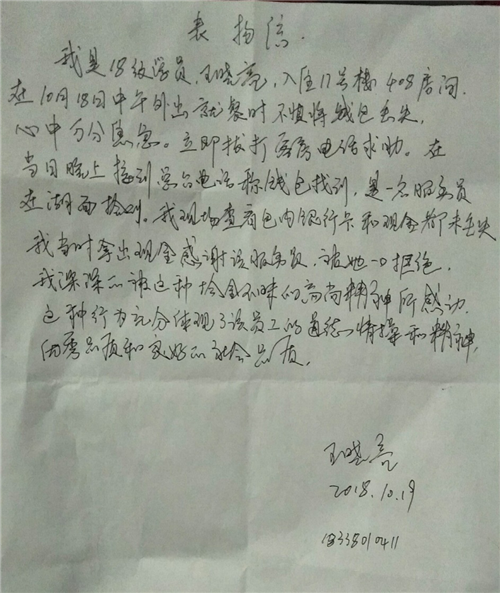 表扬信.
我是18级学员,王晓亮,入住17号楼408房间.
在10月18日中午外出就餐时不慎将钱包丢失,
心中万分焦急。立即拨打客房电话求助。在
当日晚上接到总台电话称钱包找到,是一名服务员
在湖面捡到.我现场查看包内银行卡和现金都未丢失
我当时拿出现金感谢该服务员,被她一口拒绝.
我深深的被这种拾金不昧的高尚精神所感动.
这种行为充分体现了该员工的道德情操和精神,
优秀品质和良好的社会品质.
王晓亮
2018.10.19
18335010411